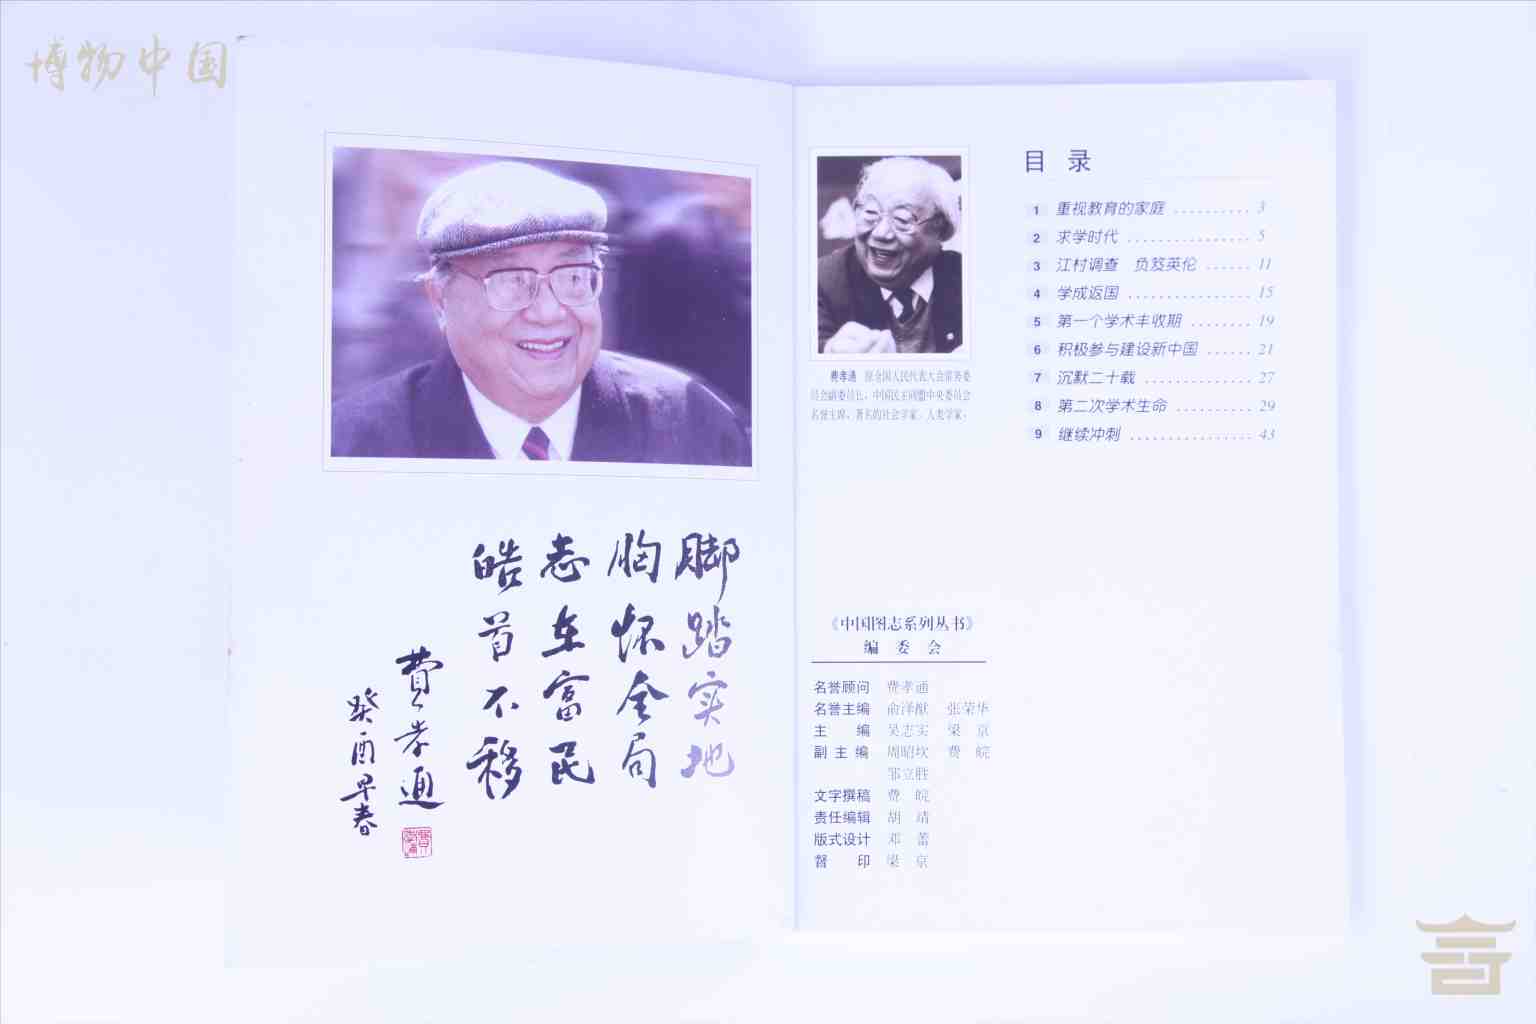 博物中国
脚踏实地
胸怀全局
志在富民
皓首不移
费孝通
癸酉早春
费孝通 原全国人民代表大会常务委
员会副委员长，中国民主同盟中央委员会
名誉主席，著名的社会学家、人类学家。
目 录
1 重视教育的家庭 .......... 3
2 求学时代 ................ 5
3 江村调查 负笈英伦 ...... 11
4 学成返国 ............... 15
5 第一个学术丰收期 ........ 19
6 积极参与建设新中国 ...... 21
7 沉默二十载 .............. 27
8 第二次学术生命 .......... 29
9 继续冲刺 ................ 43
《中国图志系列丛书》
编 委 会
名誉顾问 费孝通
名誉主编 俞泽猷 张荣华
主 编 吴志实 梁 京
副 主 编 周昭坎 费 皖
邹立胜
文字撰稿 费 皖
责任编辑 胡 靖
版式设计 邓 蕾
督 印 梁 京